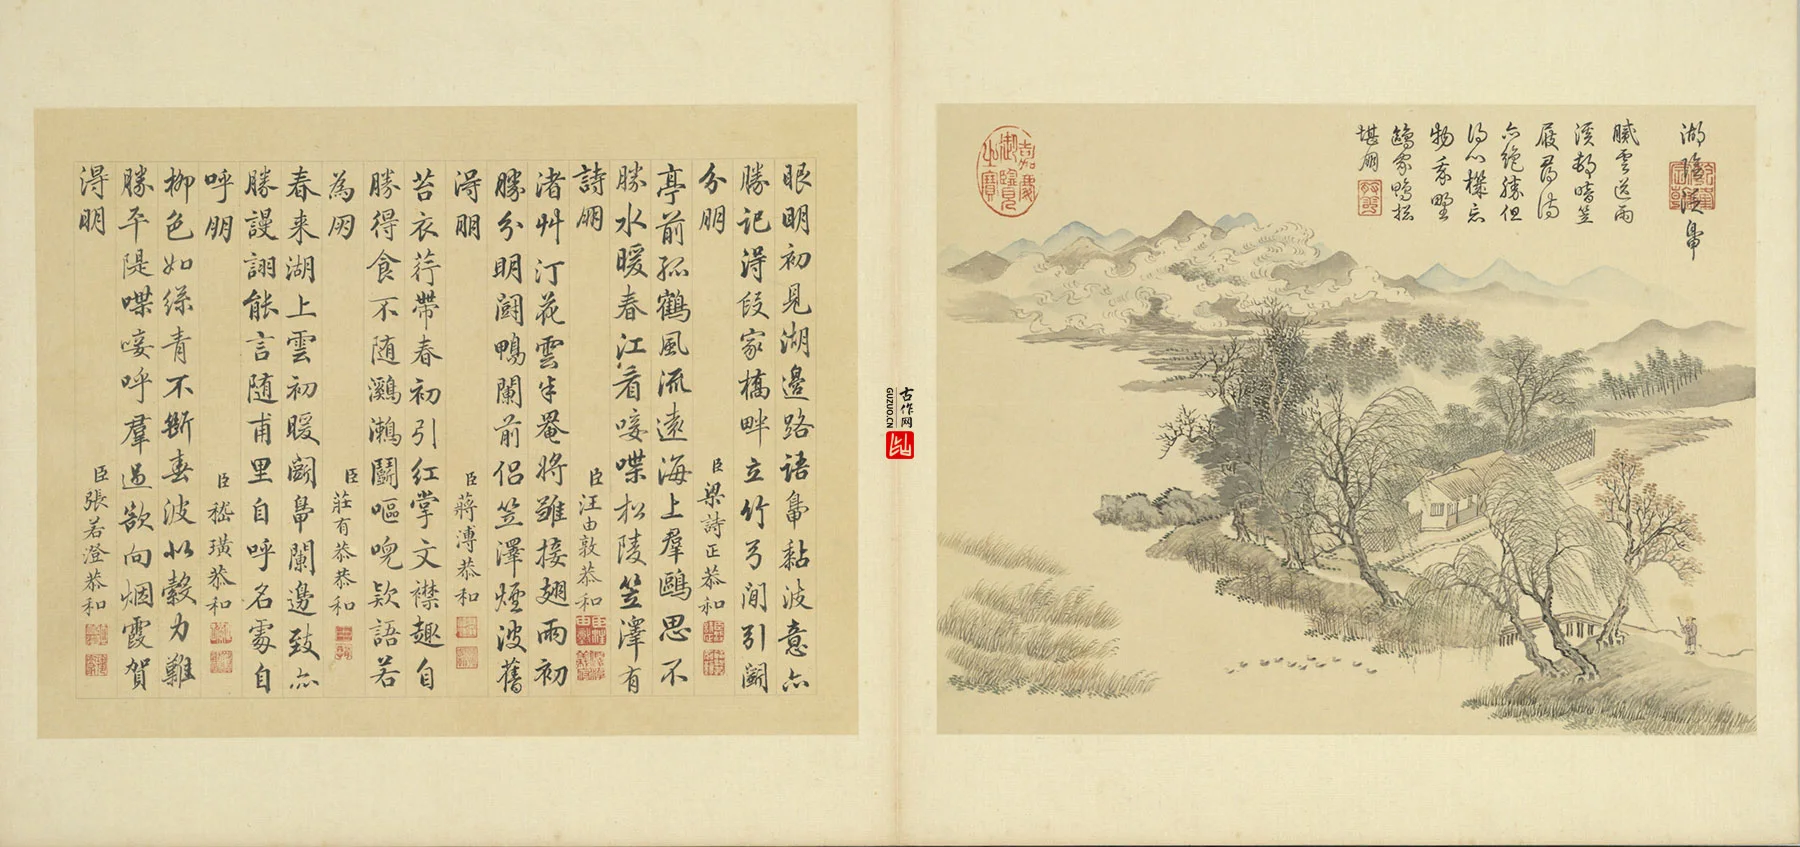 膩雲送雨
溪邨晴笠
屐尋詩
亦絕勝但
得心機忘
物我野
鷗家鴨總
堪朋
嘉慶御覽之寶
古作网
GUZUO.CN
眼明初見湖邊路語鳧黏波意亦
勝記得段家橋畔立竹弓閒引鬭
分朋 臣梁詩正恭和
亭前孤鶴風流遠海上羣鷗思不
勝水暖春江看唼喋松陵笠澤有
詩朋 臣汪由敦恭和
渚艸汀花雲半罨將雛接翅雨初
勝分明鬭鴨闌前侶笠澤煙波舊
得朋 臣蔣溥恭和
苔衣荇帶春初引紅掌文襟趣自
勝得食不随鸂鶒鬭嘔唲欵語若
為朋 臣莊有恭恭和
春来湖上雲初暖鬭鳧闌邊致亦
勝謾詡能言随甫里自呼名處自
呼朋 臣嵇璜恭和
柳色如絲青不斷春波似縠力難
勝平隄喋唼呼羣過欲向烟霞賀
得朋 臣張若澄恭和